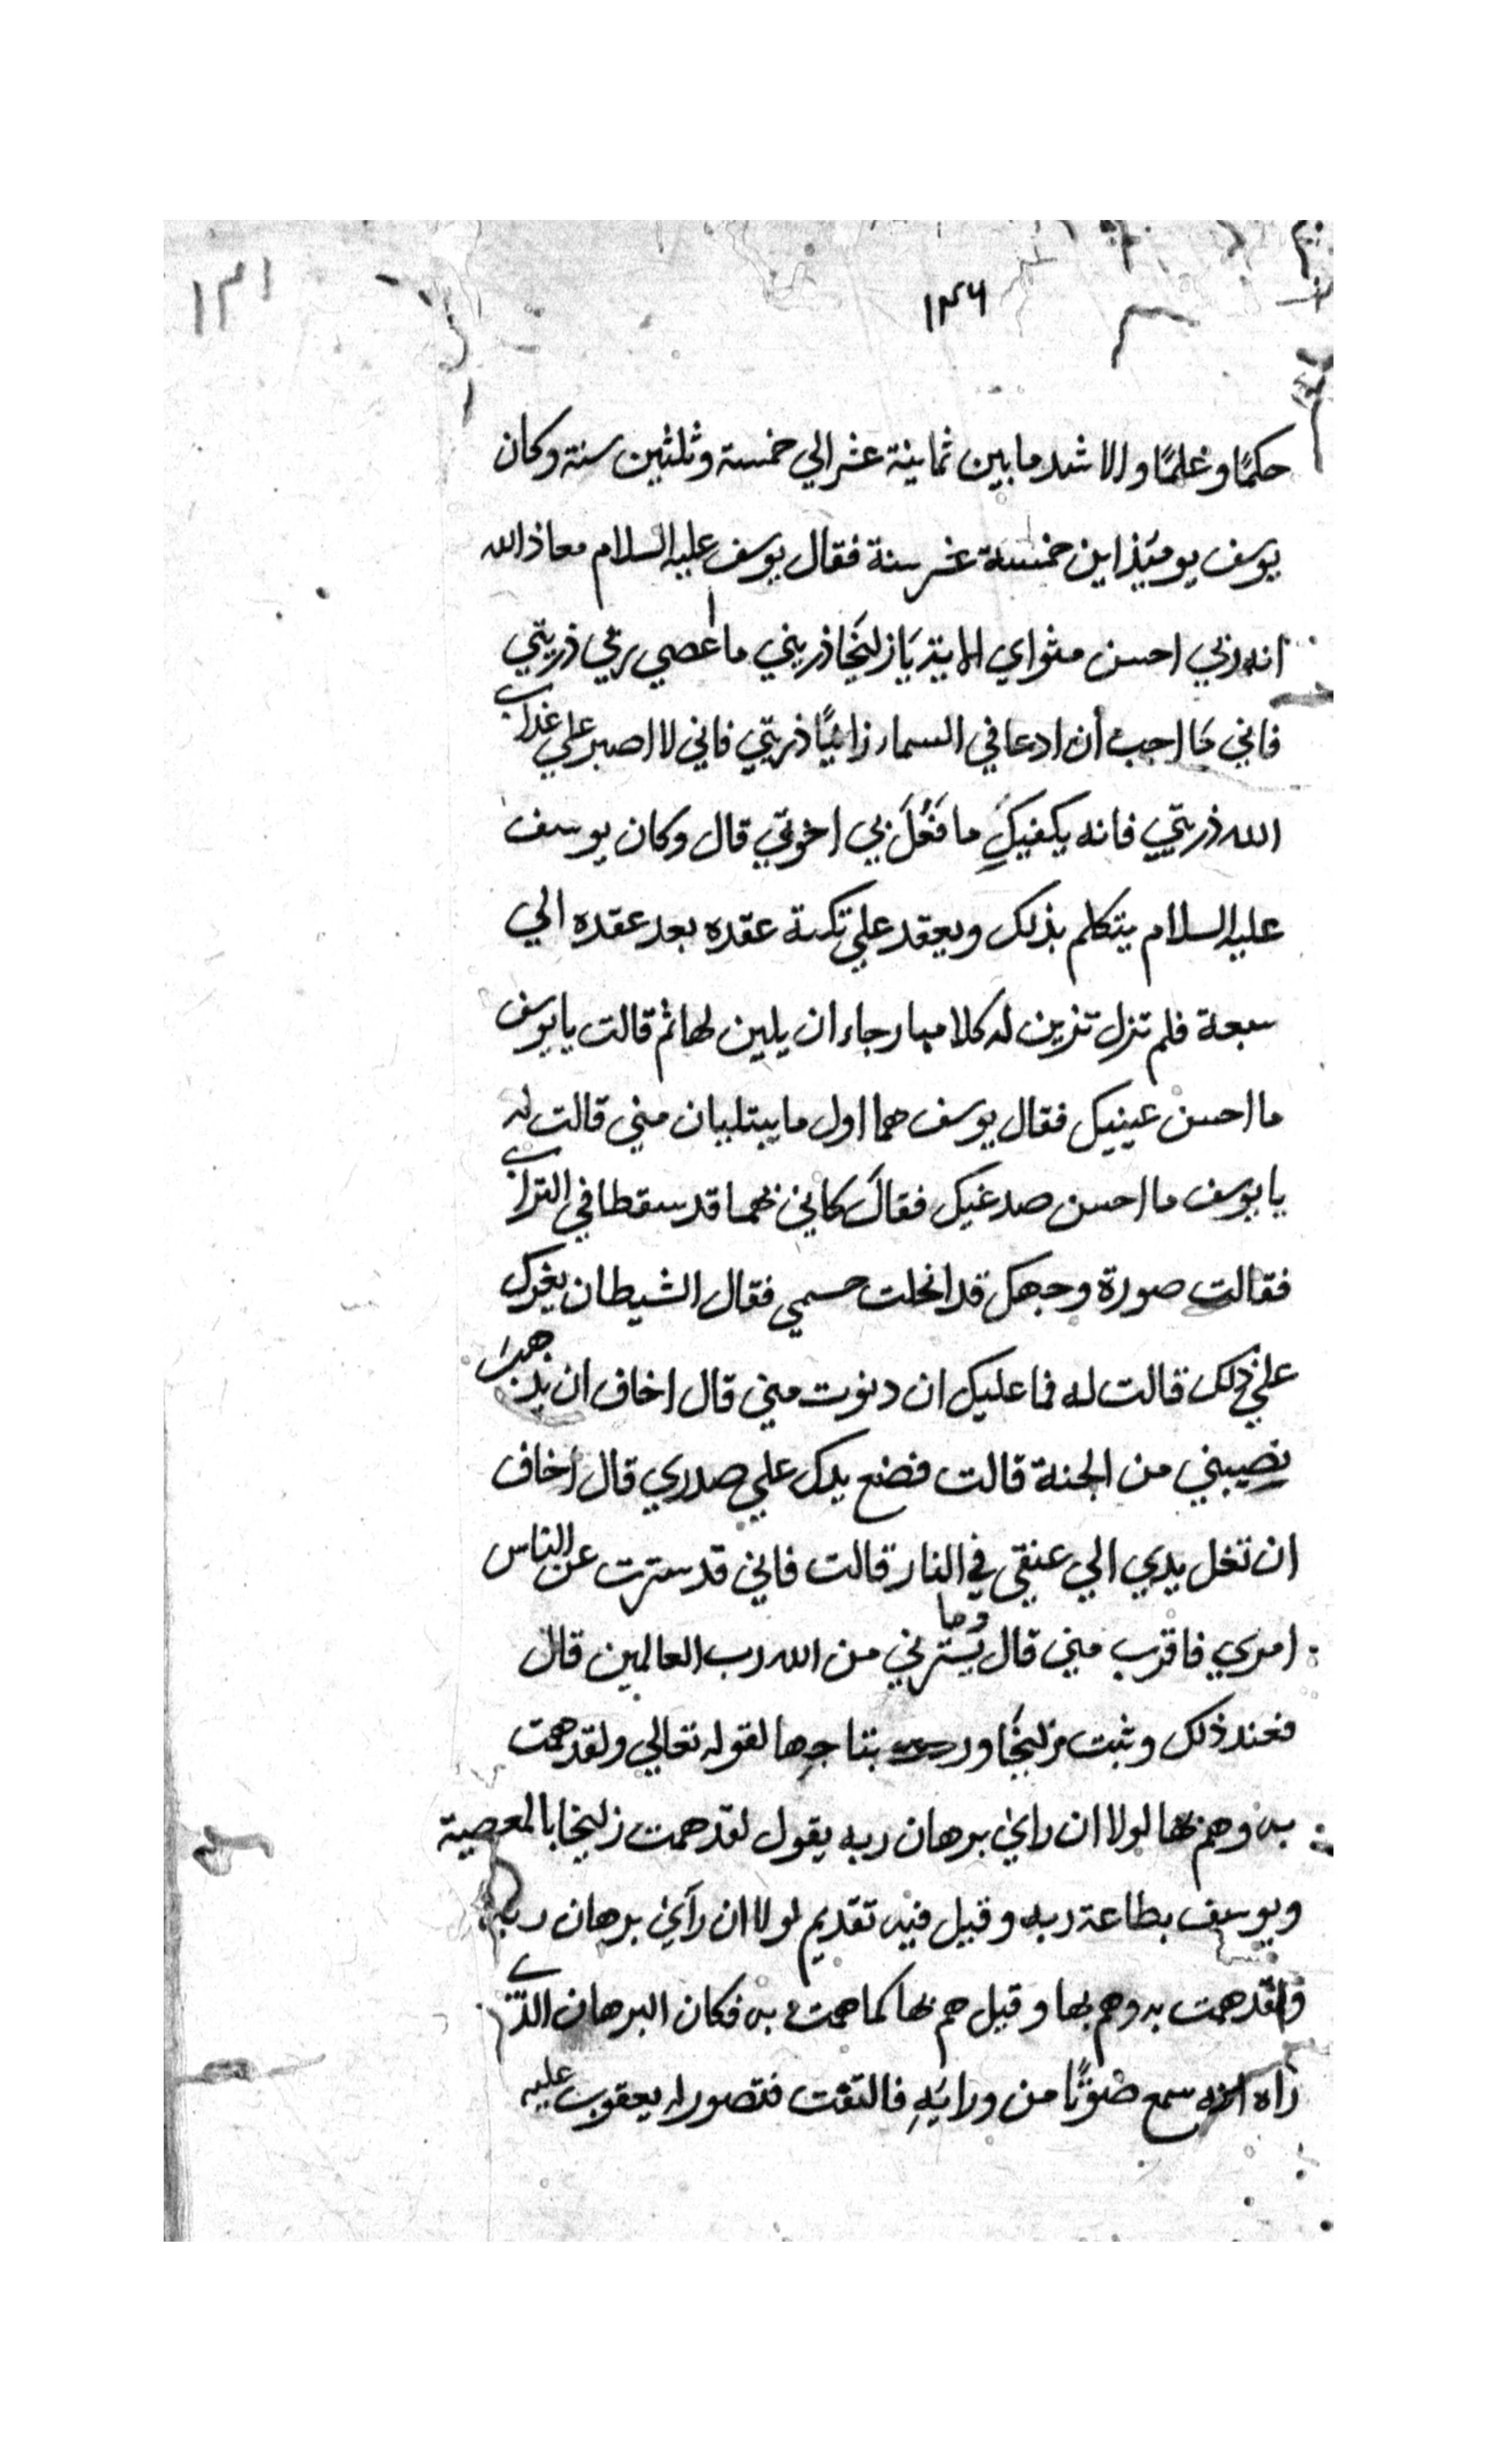 ١٣١
١٣٦
حكمًا وعلمًا والاشد ما بين ثمانية عشر الي خمسة وثلثين سنة وكان
يوسف يومئذ ابن خمسة عشر سنة فقال يوسف عليه السلام معاذ الله
انه ربي احسن مثواي الاية يَا زليخَا ذريني ما اعصي ربي ذريتي
فاني مَا احب أن ادعا في السماء زانيًا ذريتي فاني لا اصبر علي عذاب
الله ذريتي فانه يكفيكِ ما فَعُلَ بي اخوتي قال وكان يوسف
عليه السلام يتكلم بذلك ويعقد علي تكته عقده بعد عقده الي
سبعة فلم تزل تزين له كلامها رجاء ان يلين لها ثم قالت يا يوسف
ما احسن عينيك فقال يوسف هما اول ما يبتليان مني قالت له
يا يوسف ما احسن صدغيك فقالَ كاني بهما قد سقطا في التراب
فقالت صورة وجهك قد انحلت جسمي فقال الشيطان يغرك
علي ذلك قالت له فما عليك ان دنوت مني قال اخاف ان يذهب
نصيبني من الجنة قالت فضع يدك علي صدري قال اخاف
ان تغل يدي الي عنقي في النار قالت فاني قد سترت عن الناس
امري فاقرب مني قال وما يُسترني من الله رب العالمين قال
فعند ذلك وثبت زليخَا بتاجها لقوله تعالي ولقد همت
به وهم بها لولا ان راي برهان ربه يقول لقد همت زليخا بالمعصية
ويوسف بطاعة ربه وقيل فيه تقديم لولا ان رأي برهان ربه
ولقد همت به وهم بها وقيل هم بها كما همت به فكان البرهان الذي
راه انه سمع صوتًا من ورائهِ فالتفت فتصور له يعقوب عليه